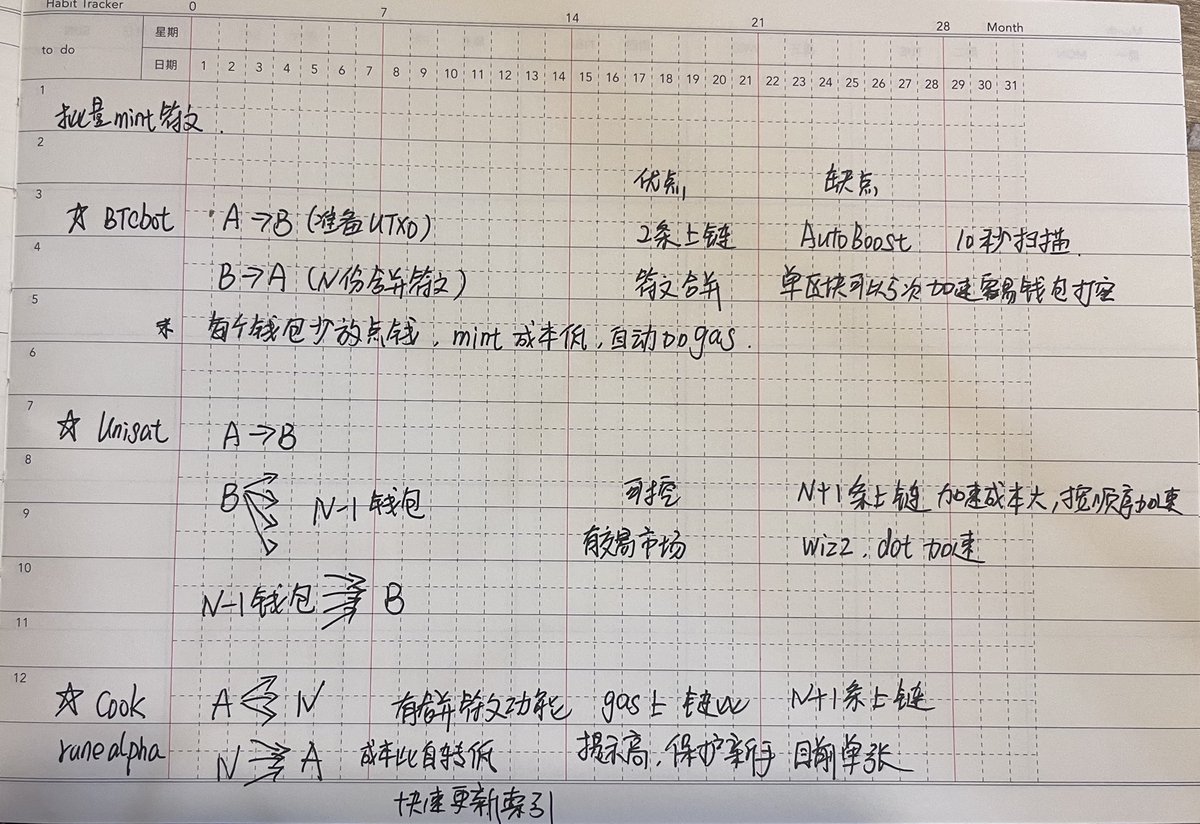 Habit Tracker 0 7 14 21 28 Month
to do 星期
日期 1 2 3 4 5 6 7 8 9 10 11 12 13 14 15 16 17 18 19 20 21 22 23 24 25 26 27 28 29 30 31
1 批量mint符文
2
优点 缺点
3 ☆ BTCbot A→B (准备UTXO) 2条上链 AutoBoost 10秒扫描
4 B→A (N份合并符文) 符文合并 单区块可以5次加速容易钱包打空
5 每个钱包少放点钱, mint成本低, 自动加gas.
6
7 ☆ Unisat A→B
8 B N-1钱包 可控 N+1条上链 加速成本大, 按顺序加速
9 有交易市场 wizz. dot 加速
10 N-1钱包 B
11
12 ☆ Cook A N 有合并符文功能 gas上链 N+1条上链
rune alpha N A 成本比自转低 提示高, 保护新手 目前单张
快速更新索引